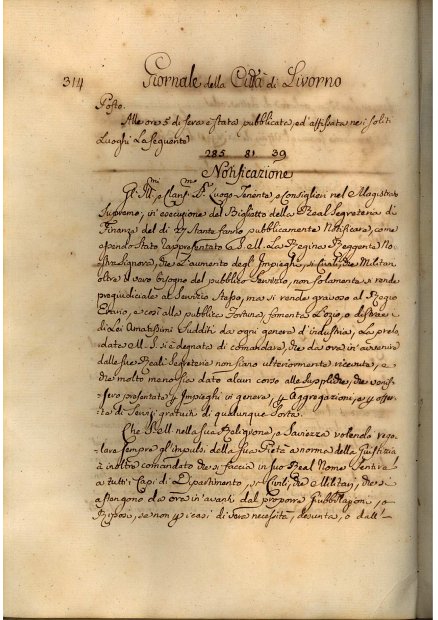 314 Giornale della Città di Livorno
Posto.
Alle ore 5 di sera è stata pubblicata, ed' affissata nei soliti
Luoghi La seguente
285 81 39
Notificazione
Gl' Ill.mi, e Clariss.mi SS.ri Luogo Tenente, e Consiglieri nel Magistrato
Supremo, in' esecuzione del Biglietto della Real Segreteria di
Finanze del dì 27 Stante fanno pubblicamente Notificare, come
essendo Stato rappresentato a S. M. La Regina Reggente No-
stra Signora, che L'aumento degl' Impieghi, sì Civili, che Militari
oltre il vero bisogno del pubblico Servizio, non solamente si rende
pregiudiciale al Servizio Stesso, ma si rende gravoso al Regio
Erario, e così alla pubblica Fortuna, fomenta L'ozio, e distrae i
di Lei Amatissimi Sudditi da ogni genere d'industria, La prelo-
data M. S. si è degnata di comandare, che da ora in' avvenire
dalle sue Reali Segreterie non siano ulteriormente ricevute, e
che molto meno sia dato alcun corso alle Suppliche, che venis-
sero presentate p Impieghi in genere, p Aggregazioni, e p offer-
ta di Servizj gratuiti di qualunque Sorta.
Che S. M. nella sua Religione, e Saviezza volendo rego-
lare sempre gl' impulsi della sua Pietà a norma della Giustizia
à inoltre comandato che si faccia in suo Real Nome Sentire
a tutti i Capi di Dipartimento, sì Civili, che Militari, che si
astengono da ora in' avanti dal proporre Giubbilazioni, o
Riposi, se non p i casi di vera necessità, desunta, o dall'